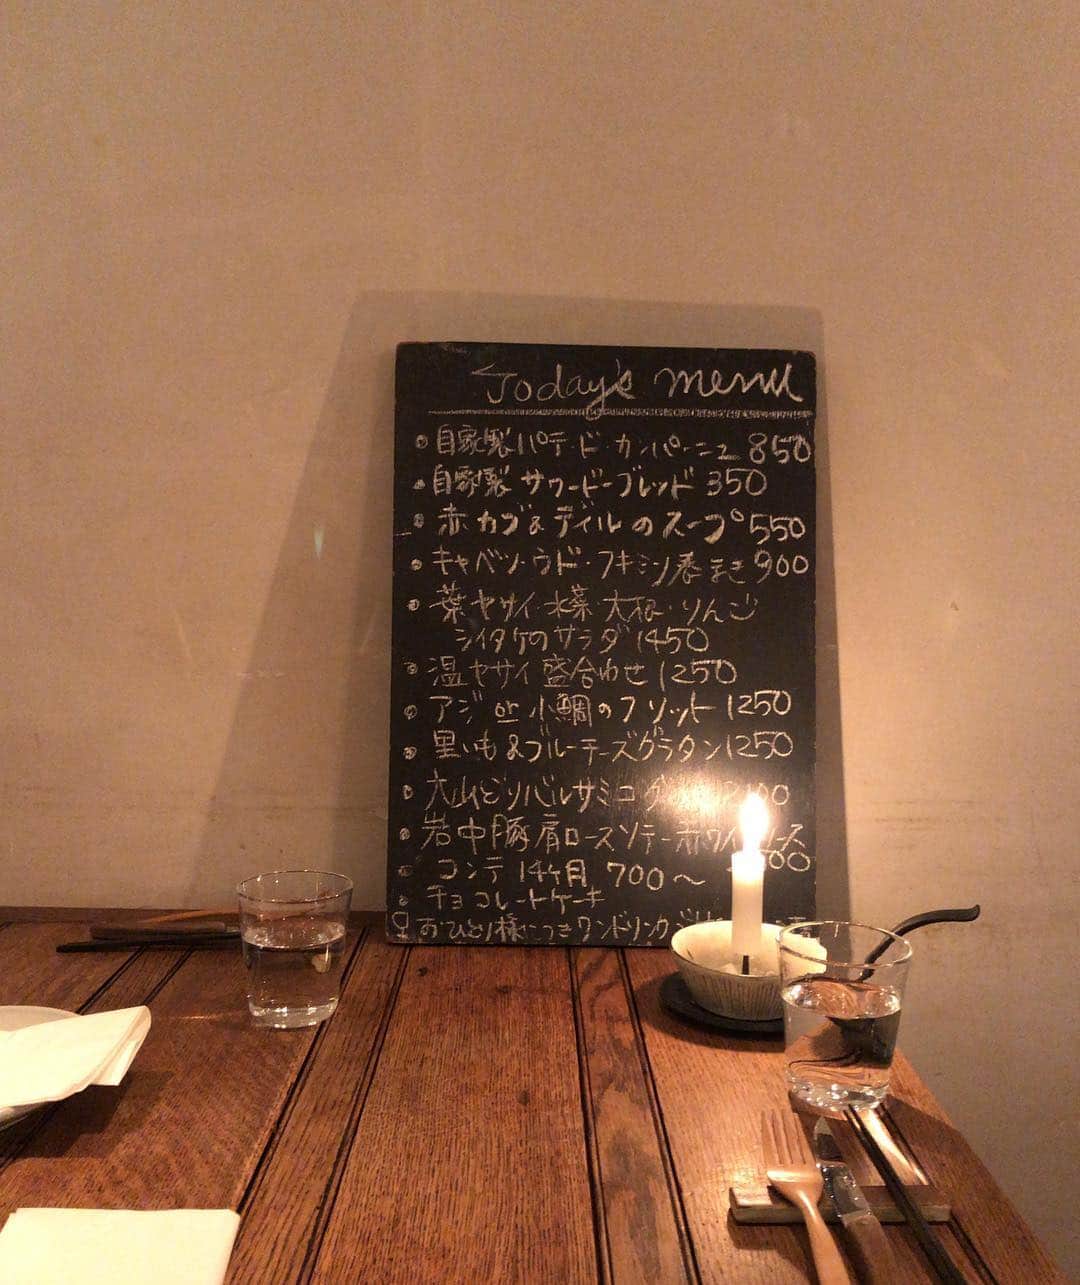 Today's menu
自家製パテ・ド・カンパーニュ 850
自家製サワードーブレッド 350
赤カブ&ディルのスープ 550
キャベツ・ウド・フキミソ春まき 900
葉ヤサイ・水菜・大根・りんご
シイタケのサラダ 1450
温ヤサイ盛合わせ 1250
アジ or 小鯛のフリット 1250
里いも&ブルーチーズグラタン 1250
大山どりバルサミコ
岩中豚肩ロースソテー赤ワイ ース
コンテ 14ヶ月 700〜
チョコレートケーキ
おひとり様につきワンドリンク